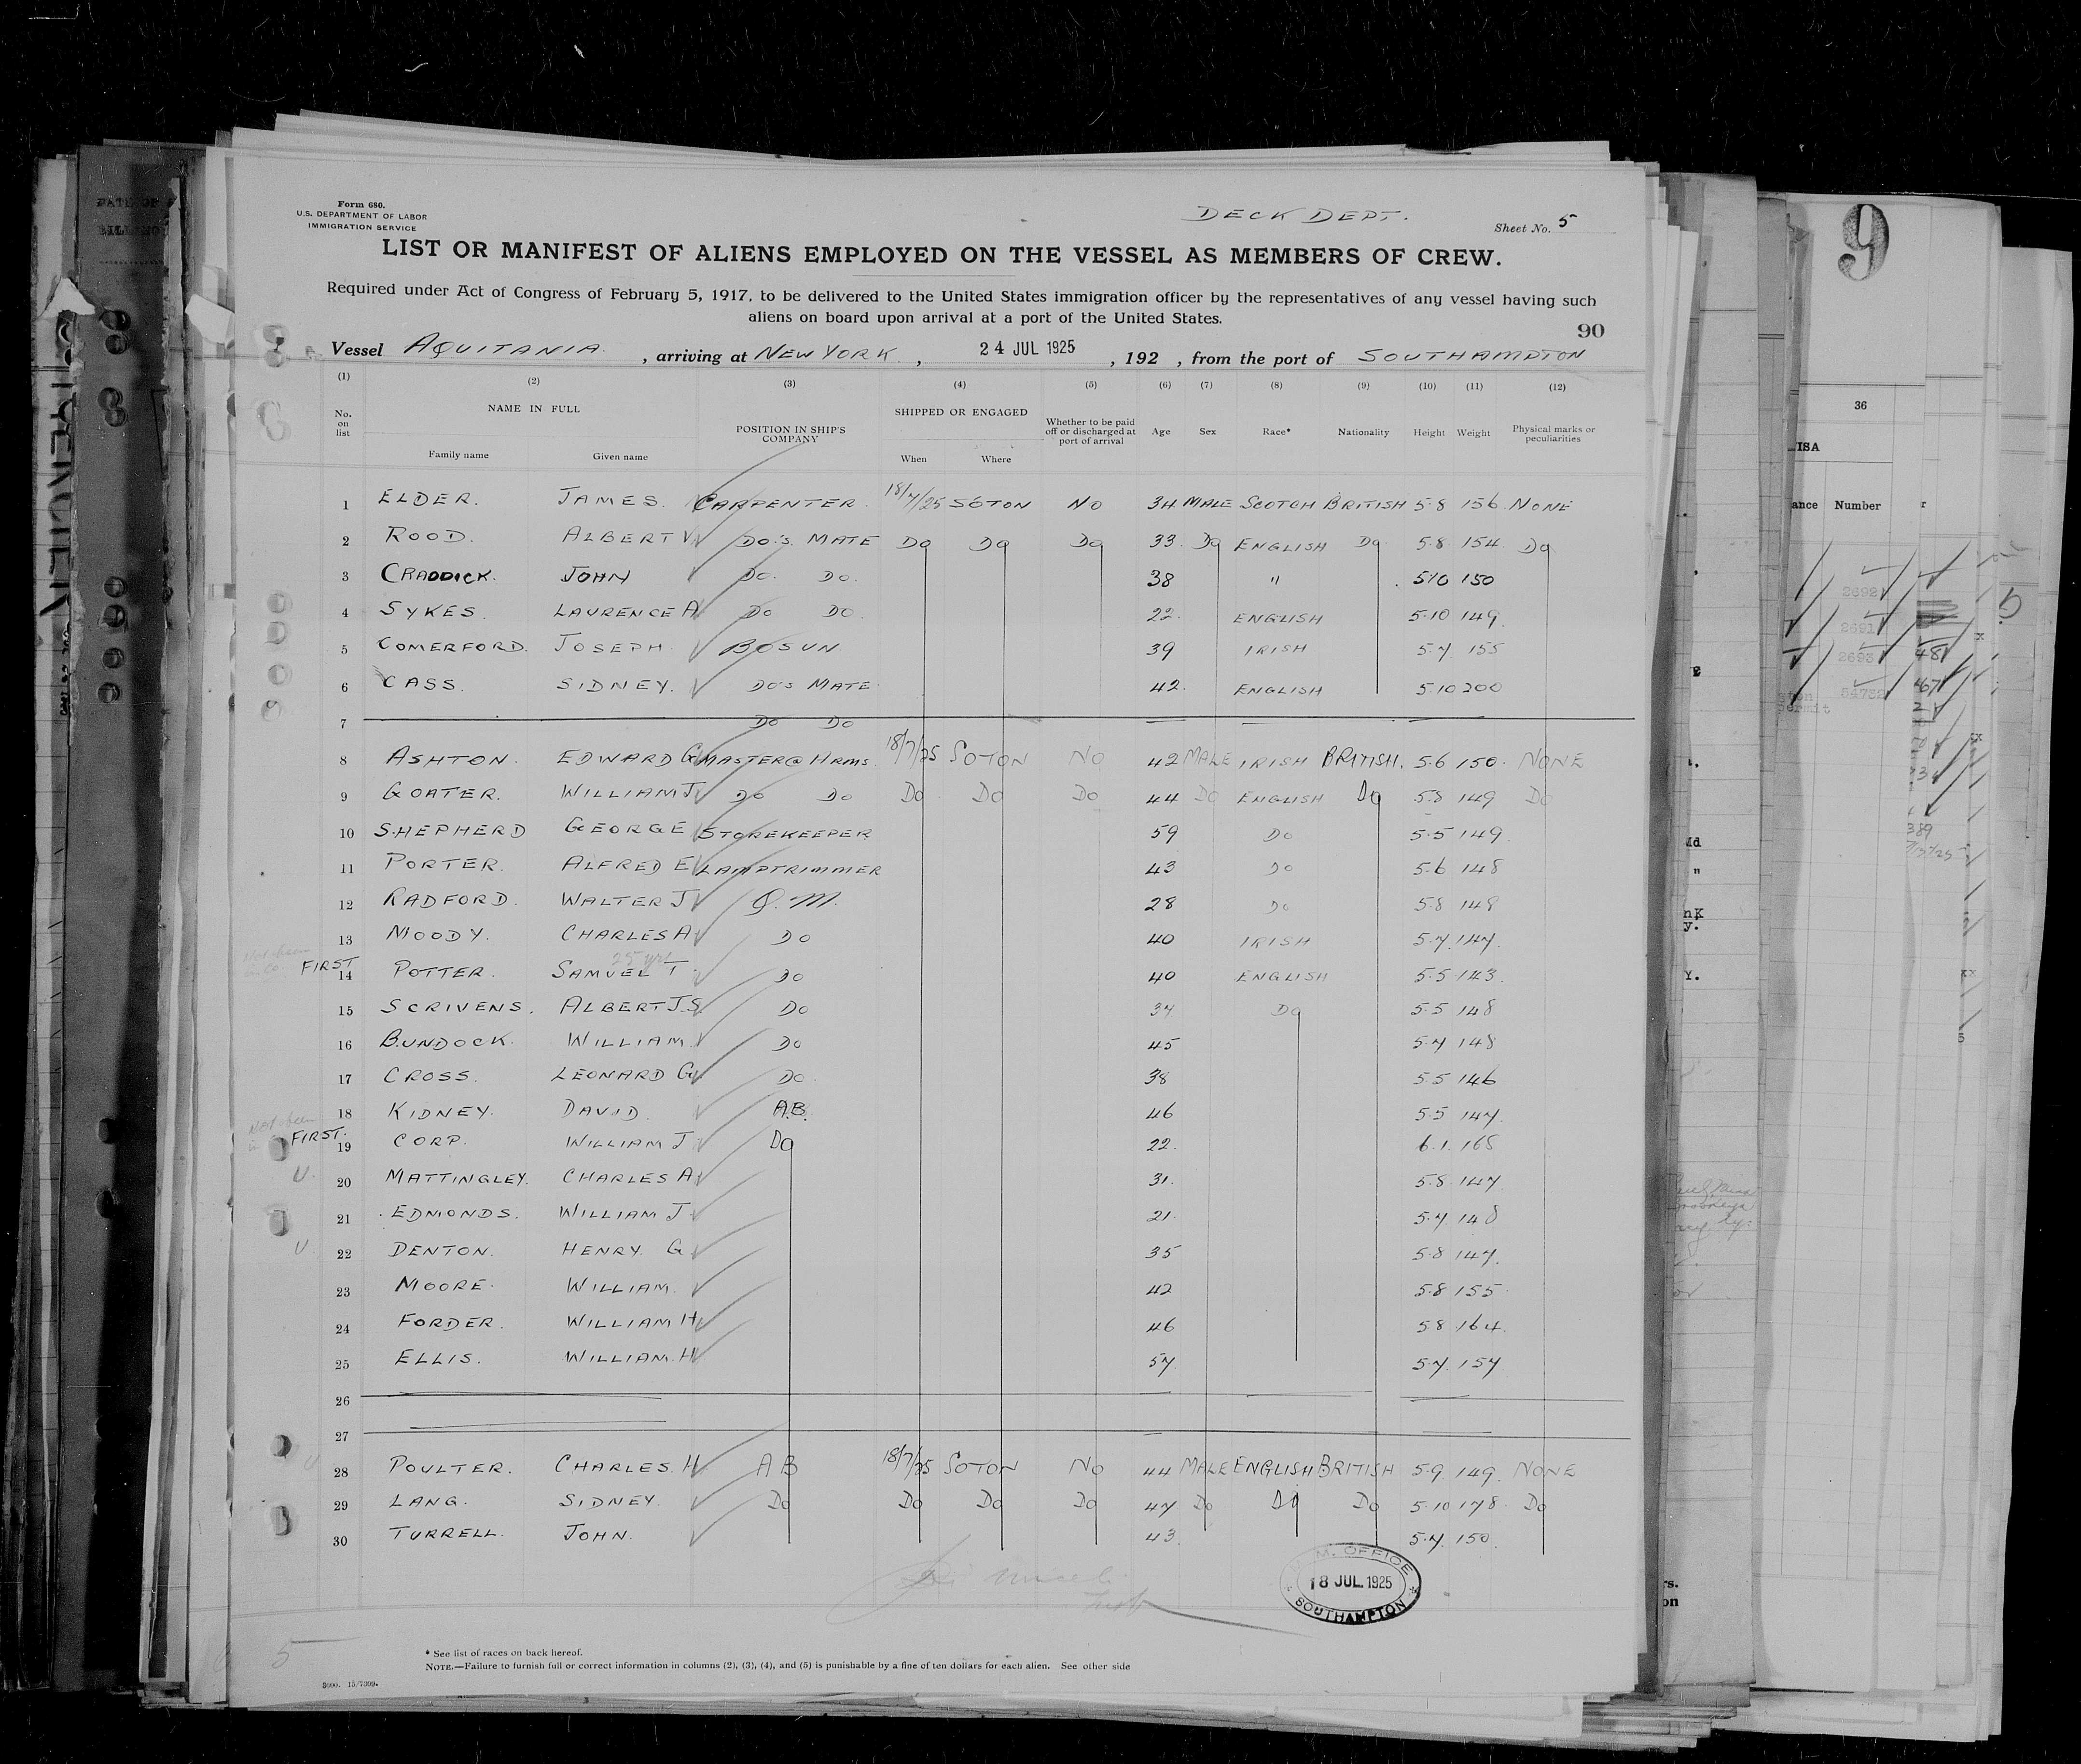 Form 680.
U.S. DEPARTMENT OF LABOR
IMMIGRATION SERVICE
DECK DEPT.
Sheet No. 5
LIST OR MANIFEST OF ALIENS EMPLOYED ON THE VESSEL AS MEMBERS OF CREW.
Required under Act of Congress of February 5, 1917, to be delivered to the United States immigration officer by the representatives of any vessel having such
aliens on board upon arrival at a port of the United States.
90
Vessel AQUITANIA , arriving at NEW YORK , 24 JUL 1925 , 192 , from the port of SOUTHAMPTON
(1) (2) (3) (4) (5) (6) (7) (8) (9) (10) (11) (12)
No. on list NAME IN FULL POSITION IN SHIP'S COMPANY SHIPPED OR ENGAGED Whether to be paid off or discharged at port of arrival Age Sex Race* Nationality Height Weight Physical marks or peculiarities
Family name Given name When Where
1 ELDER. JAMES. CARPENTER. 18/7/25 SOTON NO 34 MALE SCOTCH BRITISH 5.8 156 NONE
2 ROOD. ALBERT DO'S MATE DO DO DO 33. DO ENGLISH DO 5.8 154. DO
3 CRADDICK. JOHN DO. DO. 38 " 5.10 150
4 SYKES. LAURENCE A DO DO 22. ENGLISH 5.10 149.
5 COMERFORD. JOSEPH BOSUN. 39 IRISH 5.7 155
6 CASS. SIDNEY. DO'S MATE 42. ENGLISH 5.10 200
7 DO DO
8 ASHTON. EDWARD G MASTER@ARMS. 18/7/25 SOTON NO 42 MALE IRISH BRITISH. 5.6 150. NONE
9 GOATER. WILLIAM J DO DO DO DO DO 44 DO ENGLISH DO 5.8 149 DO
10 SHEPHERD GEORGE STOREKEEPER 59 DO 5.5 149.
11 PORTER. ALFRED E LAMPTRIMMER 43 DO 5.6 148
12 RADFORD. WALTER J Q.M. 28 DO 5.8 148
13 MOODY. CHARLES A DO 40 IRISH 5.7 147.
FIRST 14 POTTER. SAMUEL T. DO 40 ENGLISH 5.5 143.
25 yrs
15 SCRIVENS. ALBERT J.S. DO 37 DO 5.5 148
16 BUNDOCK. WILLIAM. DO 45 5.7 148
17 CROSS. LEONARD G. DO. 38 5.5 146
18 KIDNEY. DAVID. A.B. 46 5.5 147.
Not been
FIRST. 19 CORP. WILLIAM J DO 22. 6.1. 165
U. 20 MATTINGLEY. CHARLES A 31. 5.8 147
21 EDMONDS. WILLIAM J. 21. 5.7. 148
U 22 DENTON. HENRY G 35 5.8 147.
23 MOORE. WILLIAM. 42 5.8 155
24 FORDER. WILLIAM H 46 5.8 164.
25 ELLIS. WILLIAM H 57. 5.7. 157
26
27
U 28 POULTER. CHARLES. H. AB 18/7/25 SOTON NO 44 MALE ENGLISH BRITISH 5.9. 149. NONE
29 LANG. SIDNEY. DO DO DO DO 47 DO DO DO 5.10 178. DO
30 TURRELL. JOHN. 43. 5.7. 150.
M. OFFICE
18 JUL. 1925
SOUTHAMPTON
5
* See list of races on back hereof.
NOTE.—Failure to furnish full or correct information in columns (2), (3), (4), and (5) is punishable by a fine of ten dollars for each alien. See other side
5000. 15/7309.
9
36
ance Number
2692
2691
2693
54732
389